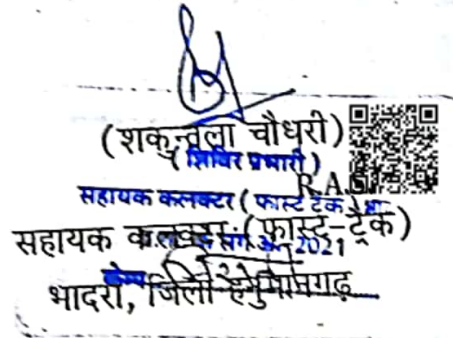 (शकुन्तला चौधरी)
(शिविर प्रभारी)
R.A.S
सहायक कलक्टर (फास्ट ट्रेक)
सहायक कलक्टर (फास्ट-ट्रेक)
2021
भादरा, जिला हनुमानगढ़